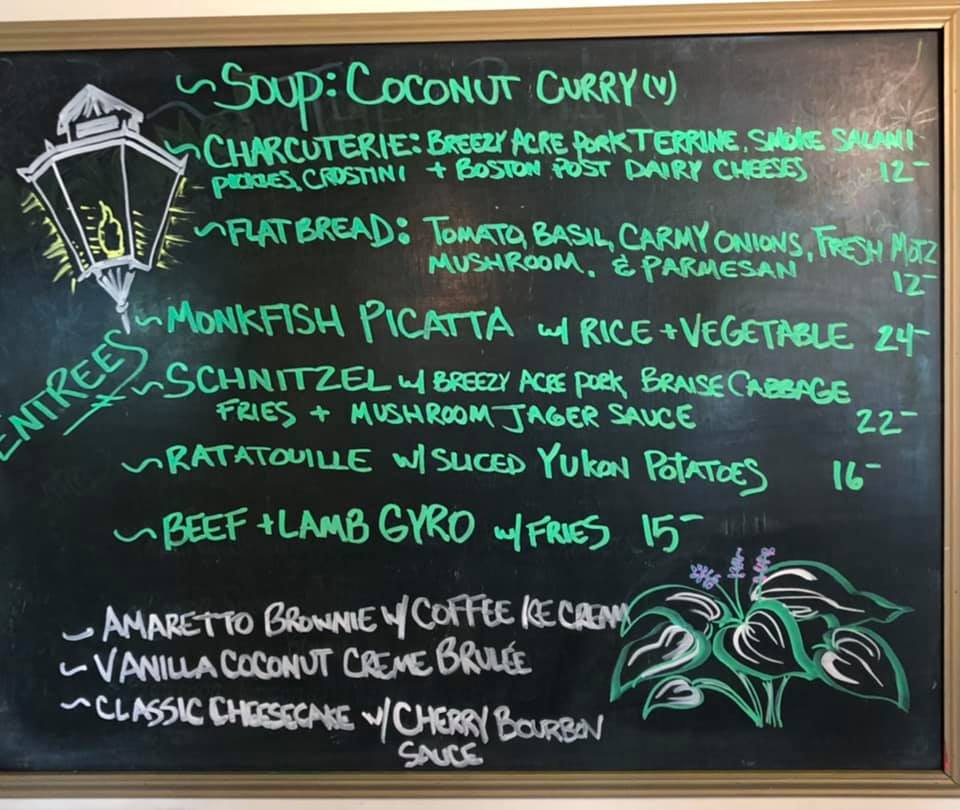 ~SOUP: COCONUT CURRY (V)
~CHARCUTERIE: BREEZY ACRE PORK TERRINE, SMOKE SALAMI
PICKLES, CROSTINI + BOSTON POST DAIRY CHEESES 12-
~FLATBREAD: TOMATO, BASIL, CARMY ONIONS, FRESH MOTZ
MUSHROOM, & PARMESAN
12-
ENTREES
~MONKFISH PICATTA w/ RICE + VEGETABLE 24-
~SCHNITZEL w/ BREEZY ACRE PORK, BRAISE CABBAGE
FRIES + MUSHROOM JAGER SAUCE 22-
~RATATOUILLE w/ SLICED YUKON POTATOES 16-
~BEEF + LAMB GYRO w/ FRIES 15-
~AMARETTO BROWNIE w/ COFFEE ICE CREAM
~VANILLA COCONUT CREME BRULÉE
~CLASSIC CHEESECAKE w/ CHERRY BOURBON
SAUCE